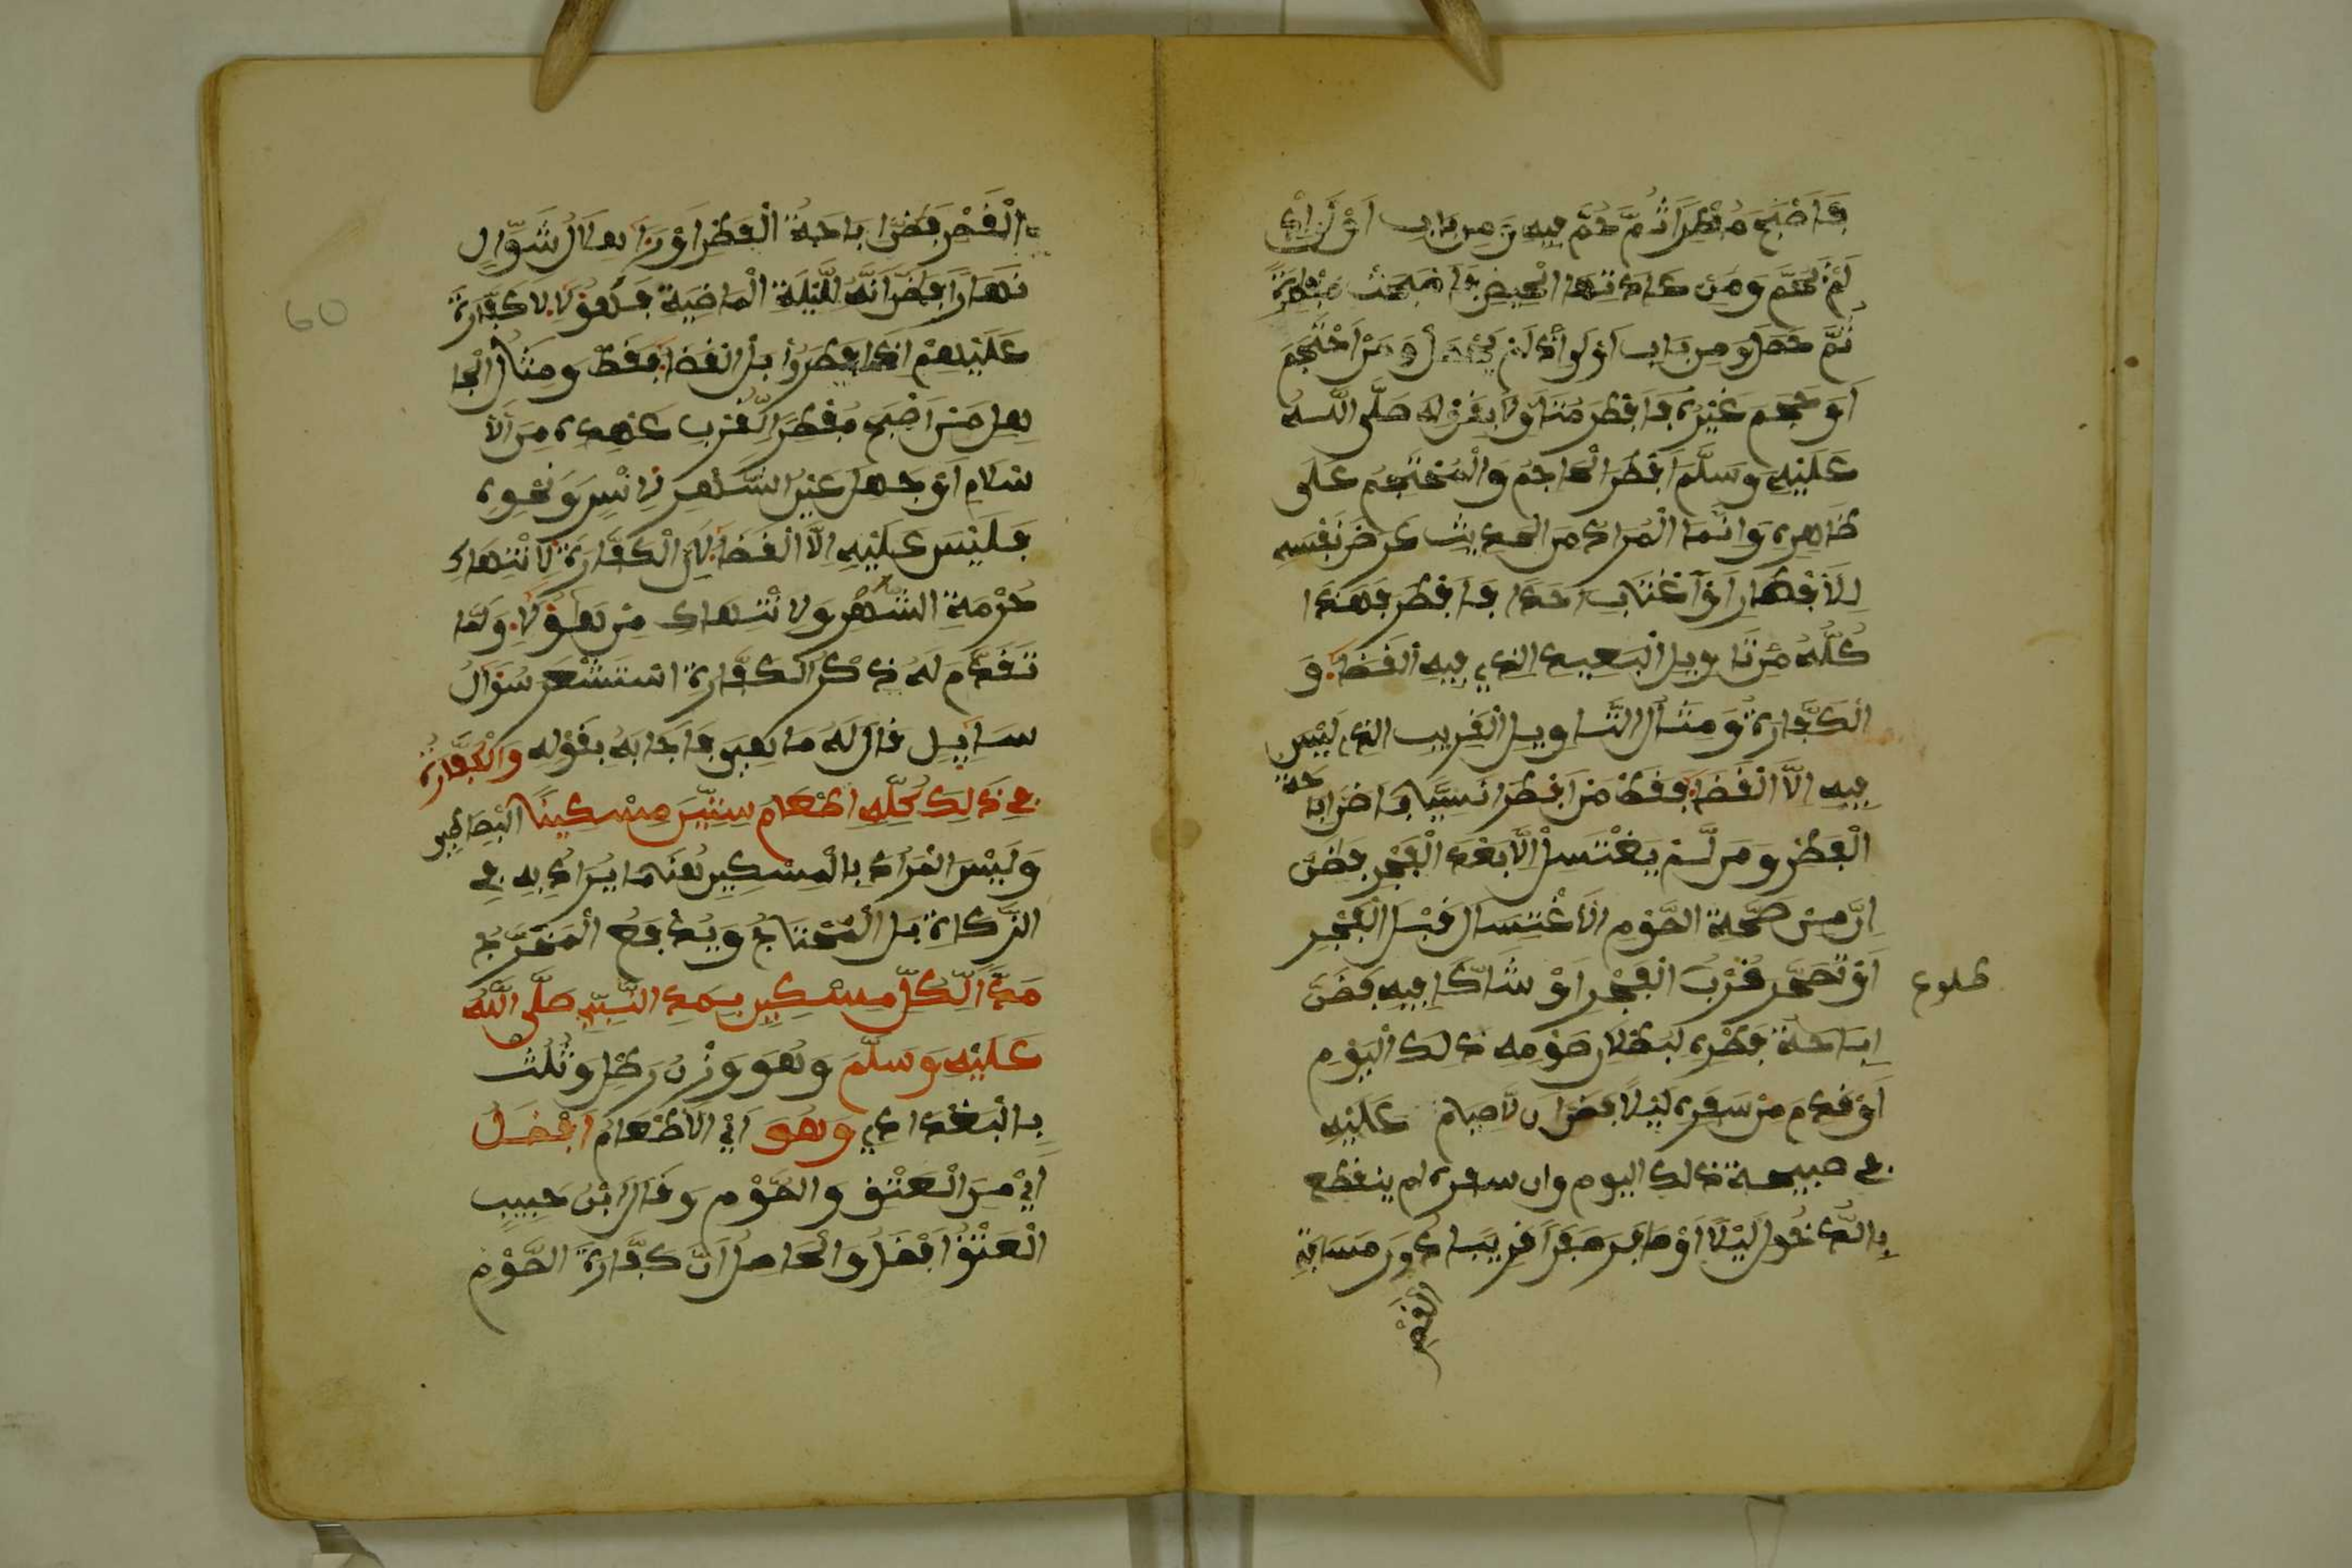 فاصبح مفطرا ثم حم فيه ومن باب اولى اذا
لم يحم ومن عادتها الحيض فاصبحت مفطرة
ثم حصل ومن باب اولى اذا لم يحصل ومن احتجم
او حجم غيره فافطر متاولا بقوله صلى الله
عليه وسلم افطر الحاجم والمحتجم على
ظاهره وانما المراد من الحديث عرض نفسه
للافطار او اغتاب احدا فافطر فهذا
كله من تاويل البعيد الذي فيه القضاء و
الكفارة ومثال التاويل القريب الذي ليس
فيه الا القضاء فقط من افطر ناسيا فاضن اباحة
الفطر ومن لم يغتسل الا بعد الفجر فظن
ان من صحة الصوم الاغتسال قبل الفجر
او تسحر قرب الفجر او شاكا فيه فظن
طلوع
اباحة فطره لبطلان صومه ذلك اليوم
او قدم من سفره ليلا فظن ان لا صيام عليه
في صبيحة ذلك اليوم وان سفره لم ينقطع
بالدخول ليلا او سافر سفرا قريبا دون مسافة
القصر
القصر فظن اباحة الفطر او راى هلال شوال
نهارا فظن انه لليلة الماضية فهؤلاء لا كفارة
عليهم اذا افطروا بل القضاء فقط ومثال الجا
هل من اصبح مفطرا لقرب عهده من الا
سلام او جهل عين الشهر لاسر ونحوه
فليس عليه الا القضاء لان الكفارة لانتهاك
حرمة الشهر ولا انتهاك من هؤلاء ولما
تقدم له ذكر الكفارة استشعر سؤال
سايل قال له ما هي فاجابه بقوله والكفارة
في ذلك كله اطعام ستين مسكينا
وليس المراد بالمسكين هنا ما يراد به في
الزكاة بل المحتاج ويدفع المخرج
مدا لكل مسكين بمد النبي صلى الله
عليه وسلم وهو وزن رطل وثلث
بالبغدادي وهو اي الاطعام افضل
اي من العتق والصوم وقال ابن حبيب
العتق افضل والحاصل ان كفارة الصوم
60